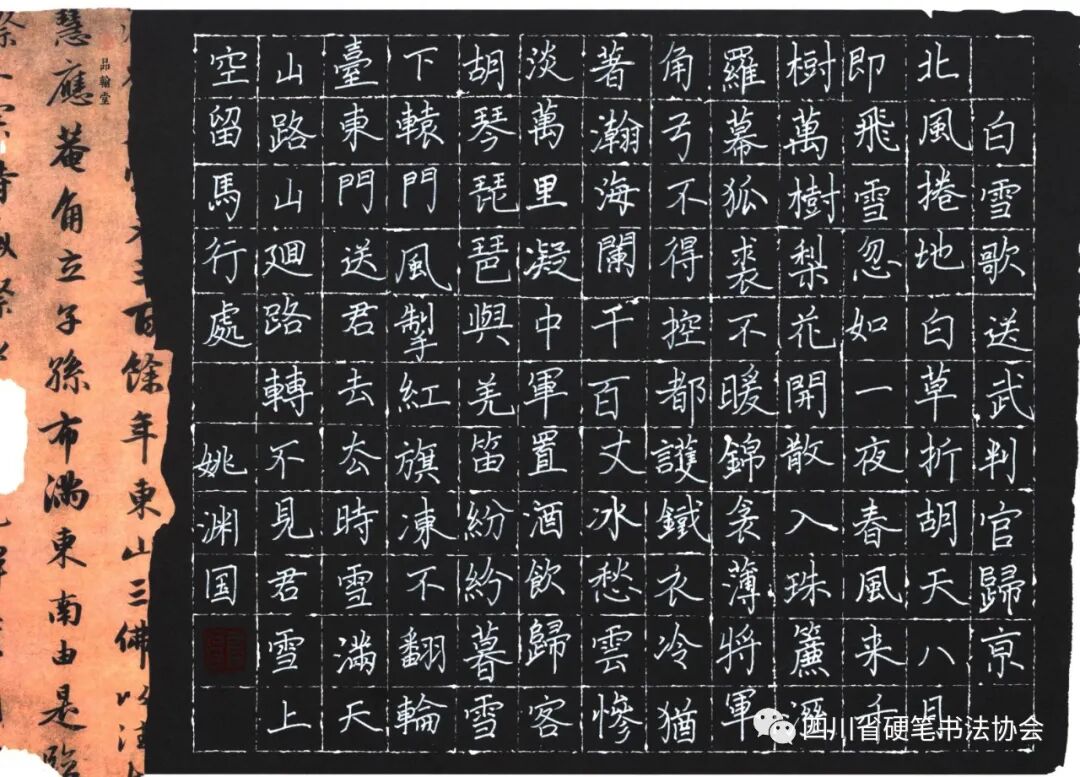 白雪歌送武判官歸京
北風捲地白草折胡天八月
即飛雪忽如一夜春風来千
樹萬樹梨花開散入珠簾濕
羅幕狐裘不暖錦衾薄將軍
角弓不得控都護鐵衣冷猶
著瀚海闌千百丈冰愁雲慘
淡萬里凝中軍置酒飲歸客
胡琴琵琶與羌笛紛紛暮雪
下轅門風掣紅旗凍不翻輪
臺東門送君去去時雪滿天
山路山廻路轉不見君雪上
空留馬行處 姚渊国
三百餘年東山三佛以法
慧應菴角立子孫布滿東南由是臨
四川省硬笔书法协会